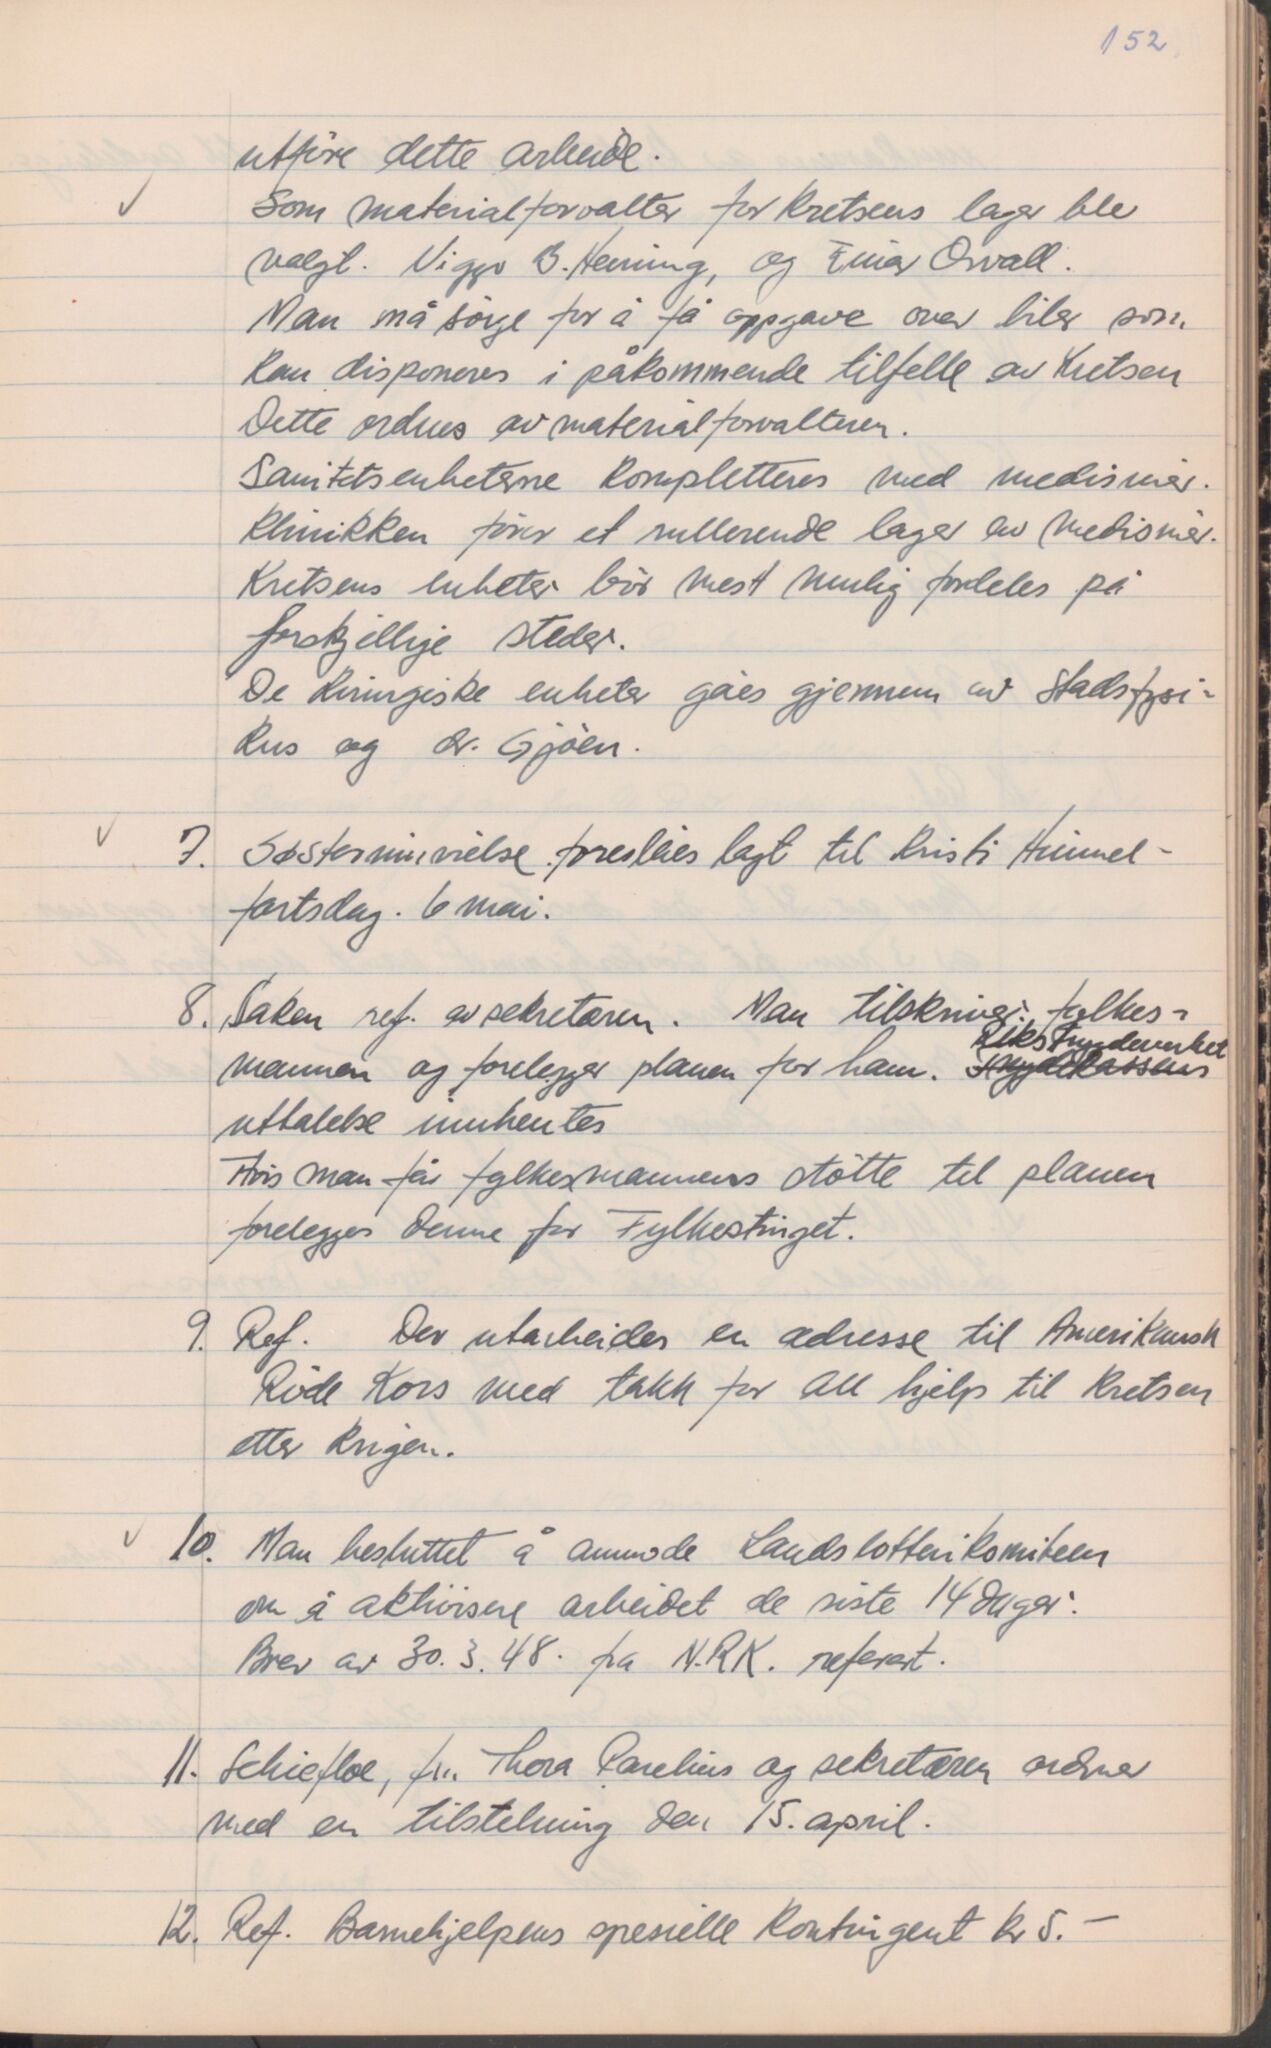 152
utføre dette arbeide.
Som materialforvalter for Kretsens lager ble
valgt. Viggo B. Henning, og Einar Orvall.
Man må sørge for å få oppgave over biler som
kan disponeres i påkommende tilfelle av Kretsen
Dette ordnes av materialforvalteren.
Sanitetsenheterne kompletteres med medisiner.
Klinikken fører et rullerende lager av medisiner.
Kretsens enheter bör mest mulig fordeles på
forskjellige steder.
De kirurgiske enheter gåes gjennem av Stadsfysi-
kus og dr. Gjöen.
7. Søsterinnvielse foreslåes lagt til Kristi Himmel-
fartsdag. 6 mai.
8. Saken ref. av sekretæren. Man tilskriver fylkes-
mannen og forelegger planen for ham. Rikstrygdeverket
uttalelse innhentes
Hvis man får fylkesmannens støtte til planen
forelegges denne for Fylkestinget.
9. Ref. Der utarbeides en adresse til Amerikansk
Röde Kors med takk for all hjelp til Kretsen
etter krigen.
10. Man besluttet å anmode Landslotterikomiteen
om å aktivisere arbeidet de siste 14 dager.
Brev av 30.3.48. fra N.R.K. referert.
11. Schiefloe, fru Thora Parelius og sekretæren ordner
med en tilstelning den 15. april.
12. Ref. Barnehjelpens spesielle Kontingent kr 5.-